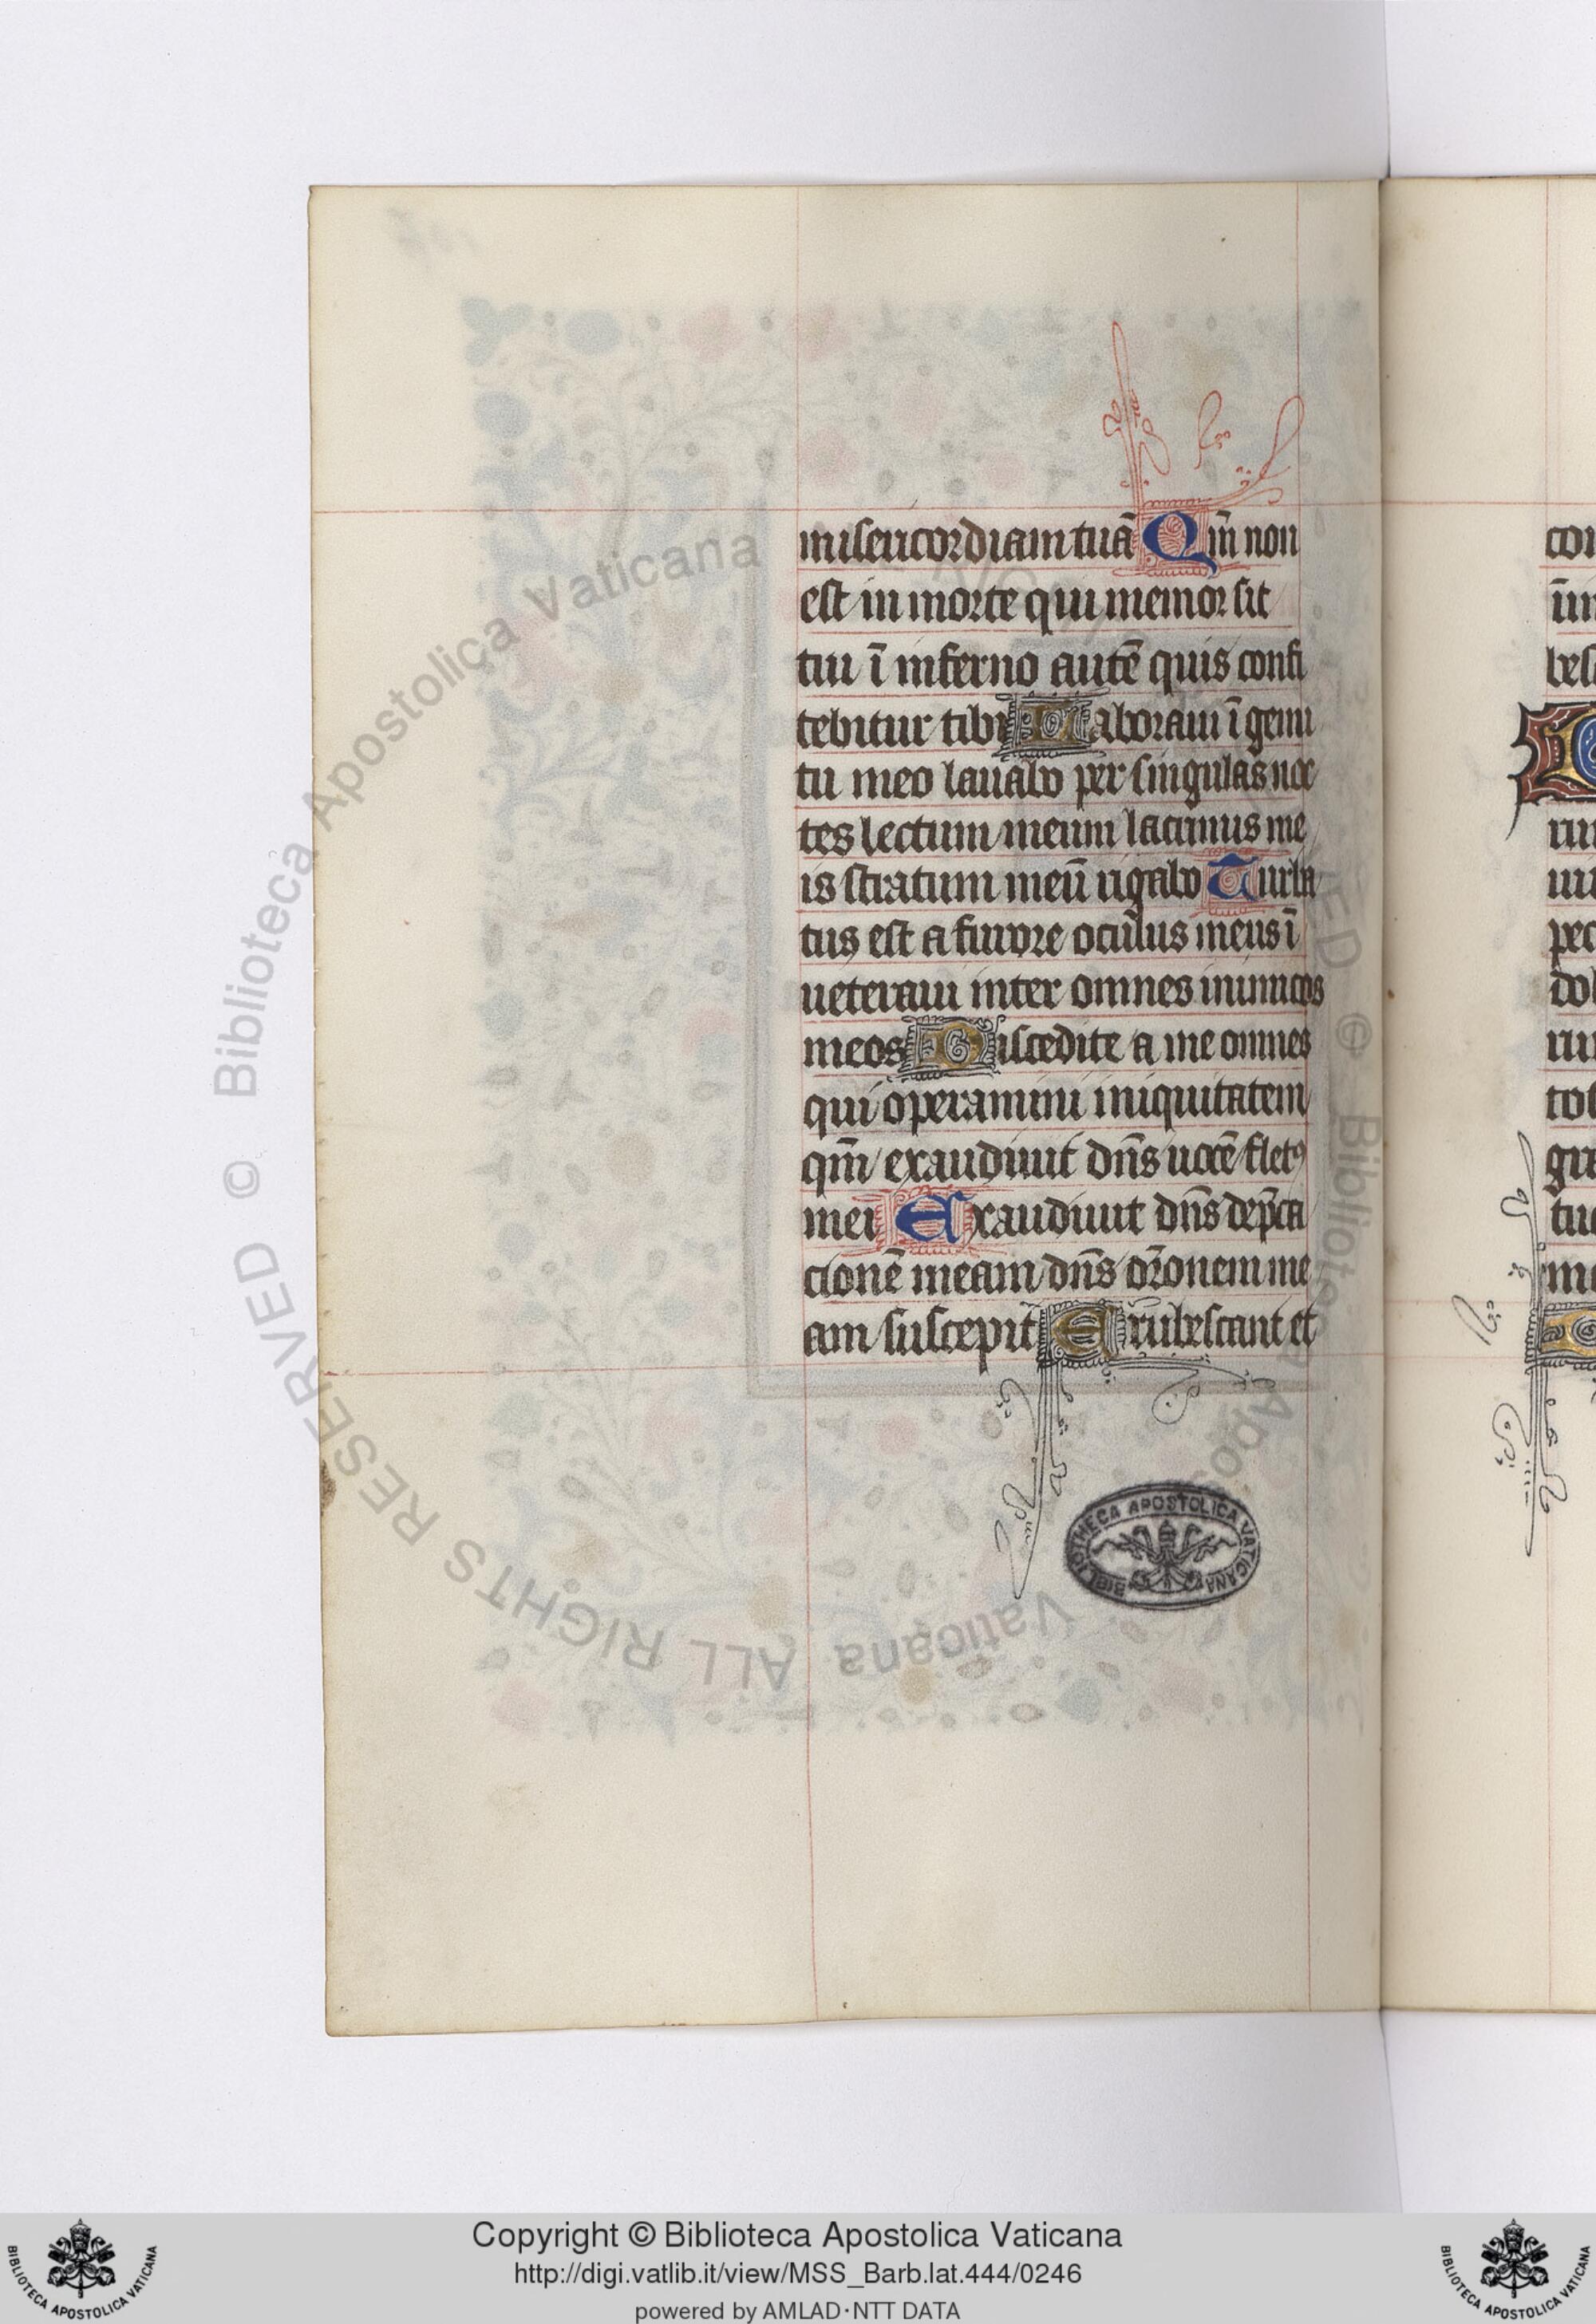 misericordiam tuā Qm̄ non
est in morte qui memor sit
tui ī inferno autē quis confi
tebitur tibi Laboraui ī gemi
tu meo lauabo per singulas noc
tes lectum meum lacrimis me
is stratum meū rigabo Turba
tus est a furore oculus meus ī
ueteraui inter omnes inimicos
meos Discedite a me omnes
qui operamini iniquitatem
qm̄ exaudiuit dn̄s uocē fletꝰ
mei Exaudiuit dn̄s dep̄ca
cionē meam dn̄s or̄onem me
am suscepit Erubescant et
BIBLIOTHECA APOSTOLICA VATICANA
ALL RIGHTS RESERVED © Biblioteca Apostolica Vaticana
Copyright © Biblioteca Apostolica Vaticana
http://digi.vatlib.it/view/MSS_Barb.lat.444/0246
powered by AMLAD·NTT DATA
BIBLIOTECA APOSTOLICA VATICANA
BIBLIOTECA APOSTOLICA VATICANA